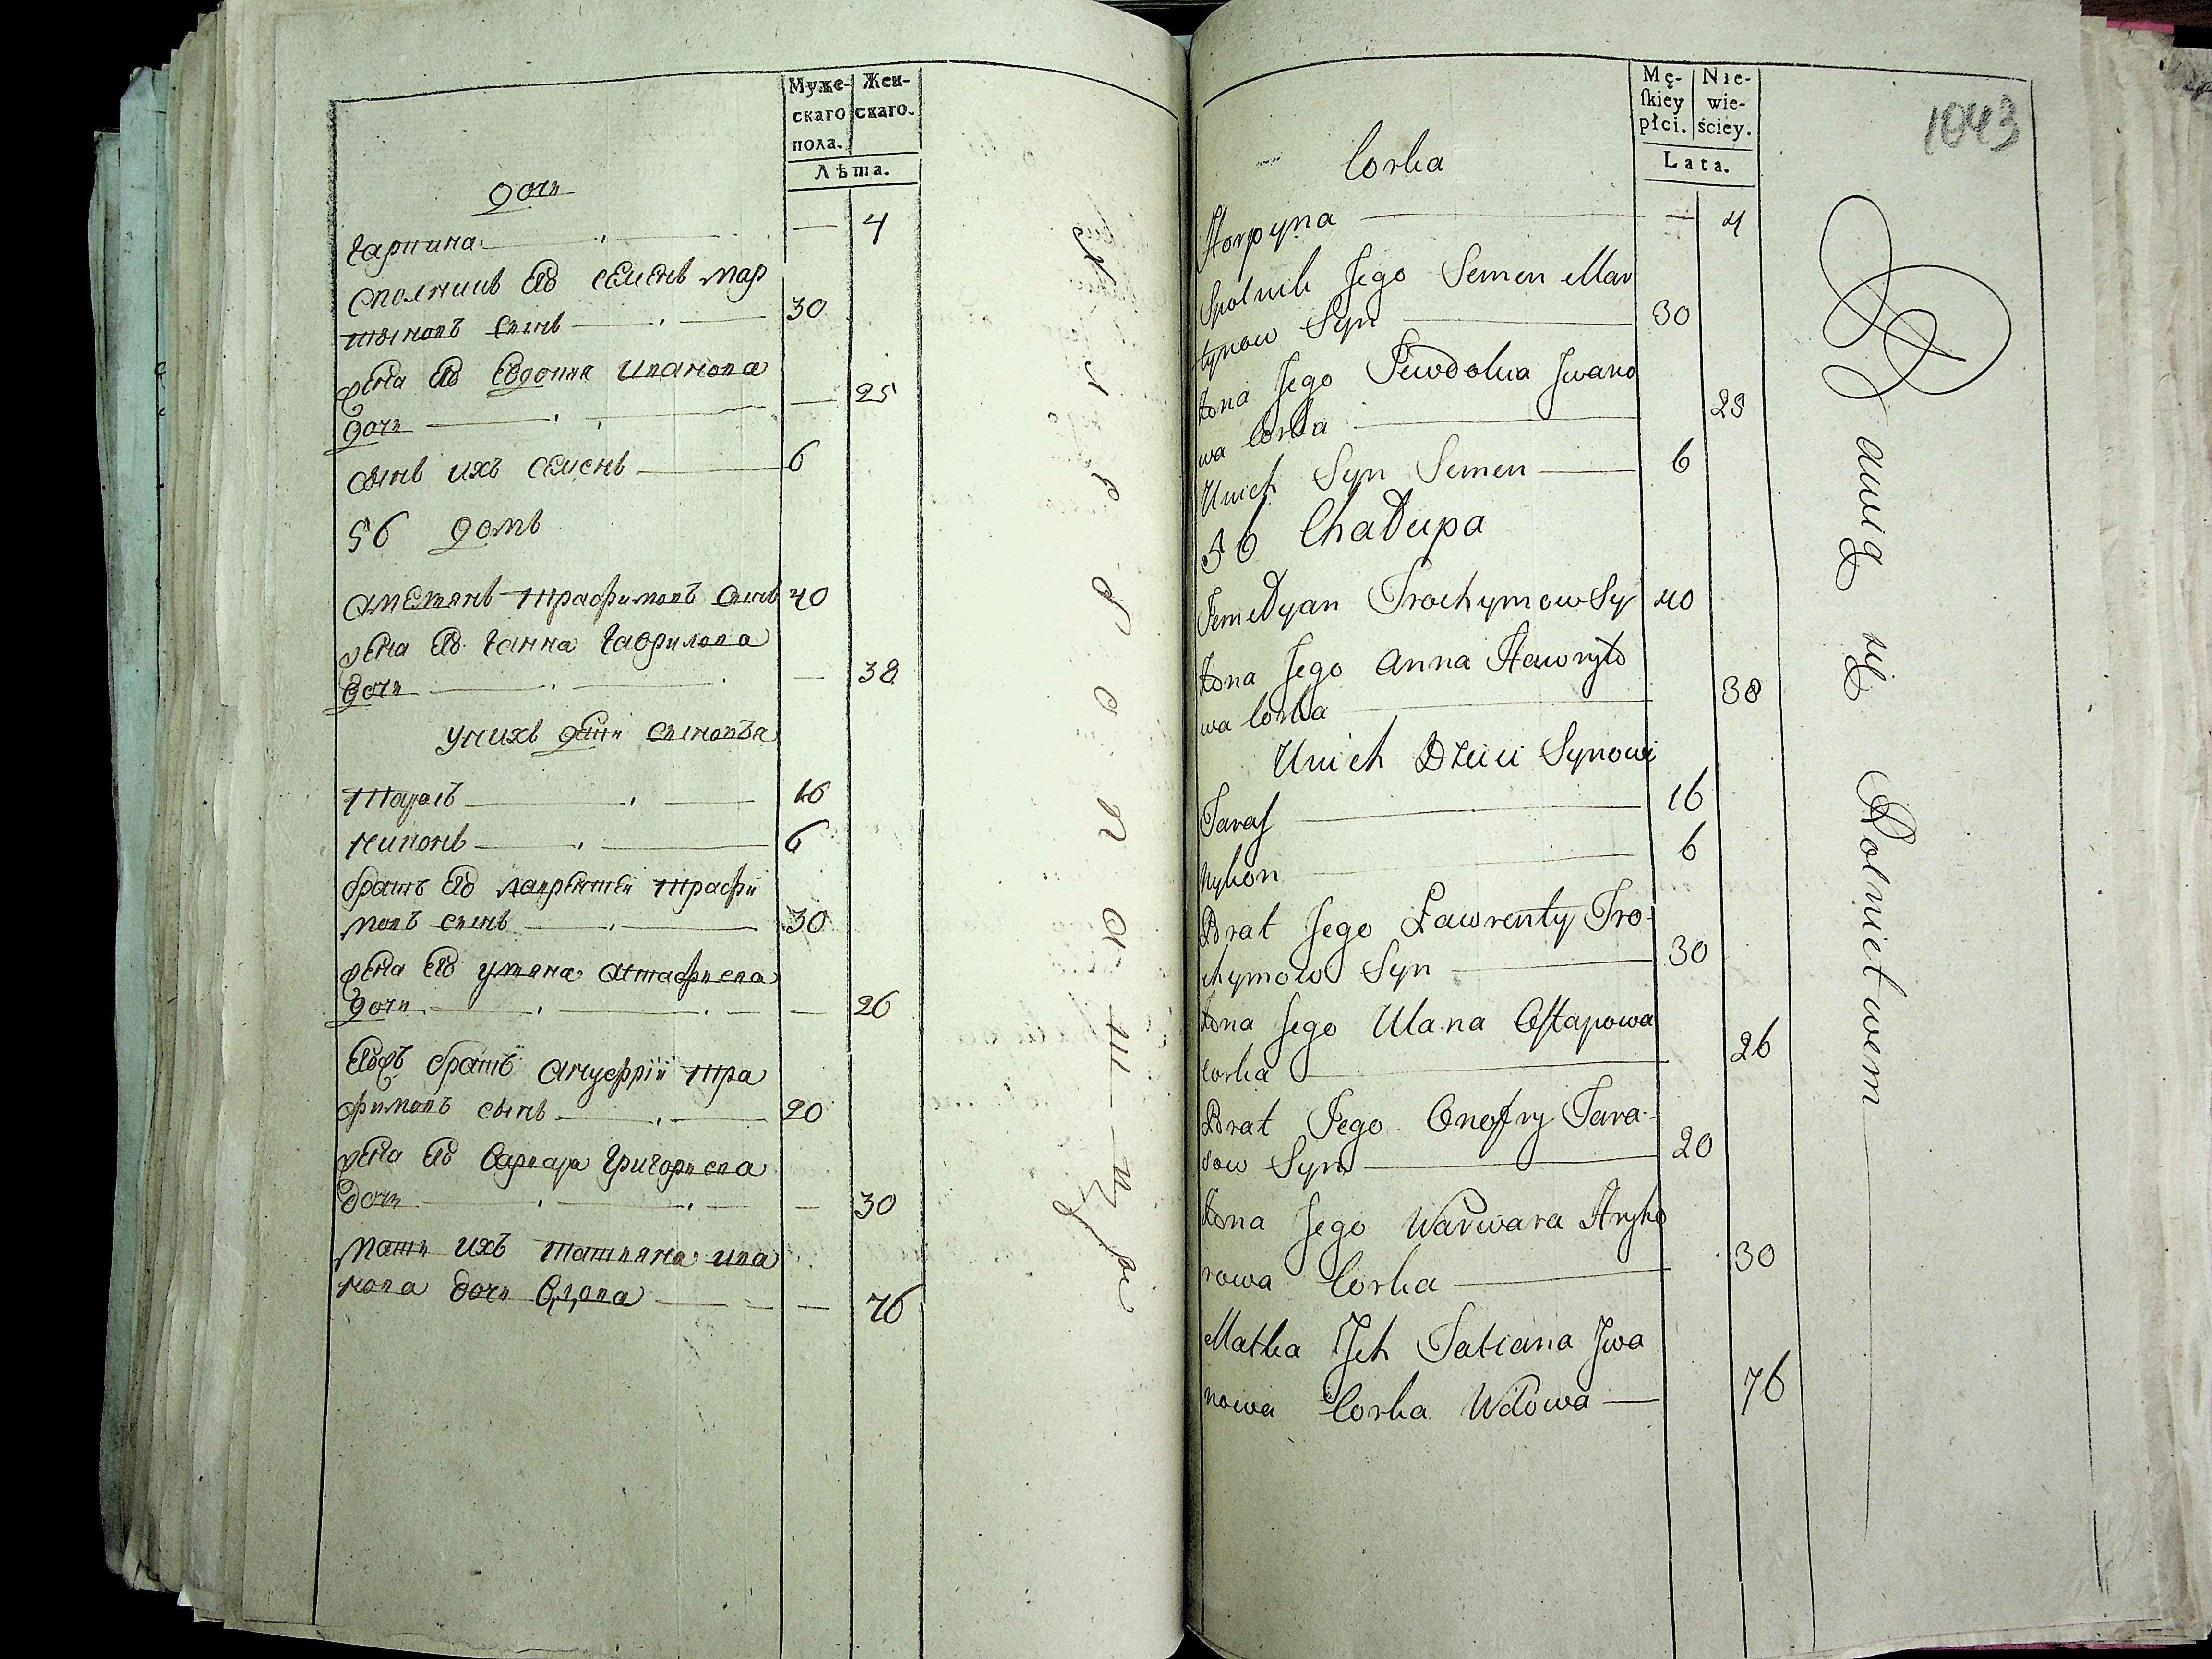 Муже-
скаго
пола.
Жен-
скаго.
Лѣта.
дочь
Гарпина — 4
Сполникъ Его Семенъ Мар
тыновъ сынъ 30
жена Его Евдокия Иванова
дочь — 25
сынъ ихъ Семенъ 6
56 домъ
Трафимовъ сынъ 40
жена Его Ганна Гаврилова
дочь — 38
у нихъ дети сыновья
Тарасъ 16
Никонъ 6
братъ Его Лаврентей Трафи
мовъ сынъ 30
жена Его Уляна
дочь — 26
братъ Ануфрій Тра
фимовъ сынъ 20
жена Его Варвара Григорьева
дочь — 30
мать ихъ Татьяна Ива
нова дочь вдова — 76
Mę-
skiey
płci.
Nie-
wie-
ściey.
Lata.
1043
Corka
Horpyna — 4
Spolnik Jego Semen Mar
tynow Syn 30
Żona Jego Jewdokia Jwano
wa Corka 25
Unich Syn Semen 6
56 Chałupa
Jemełyan Trochymow Sy 40
Żona Jego Anna Hawryło
wa Corka 38
Unich Dzieci Synowi
Taras 16
Nykon 6
Brat Jego Ławrenty Tro-
chymow Syn 30
Żona Jego Ulana Ostapowa
corka 26
Brat Jego Onofry Tara-
sow Syn 20
Żona Jego Warwara Hryho
rowa Corka 30
Matka Jch Tatiana Jwa
nowa Corka Wdowa — 76
Bawią się Rolnictwem